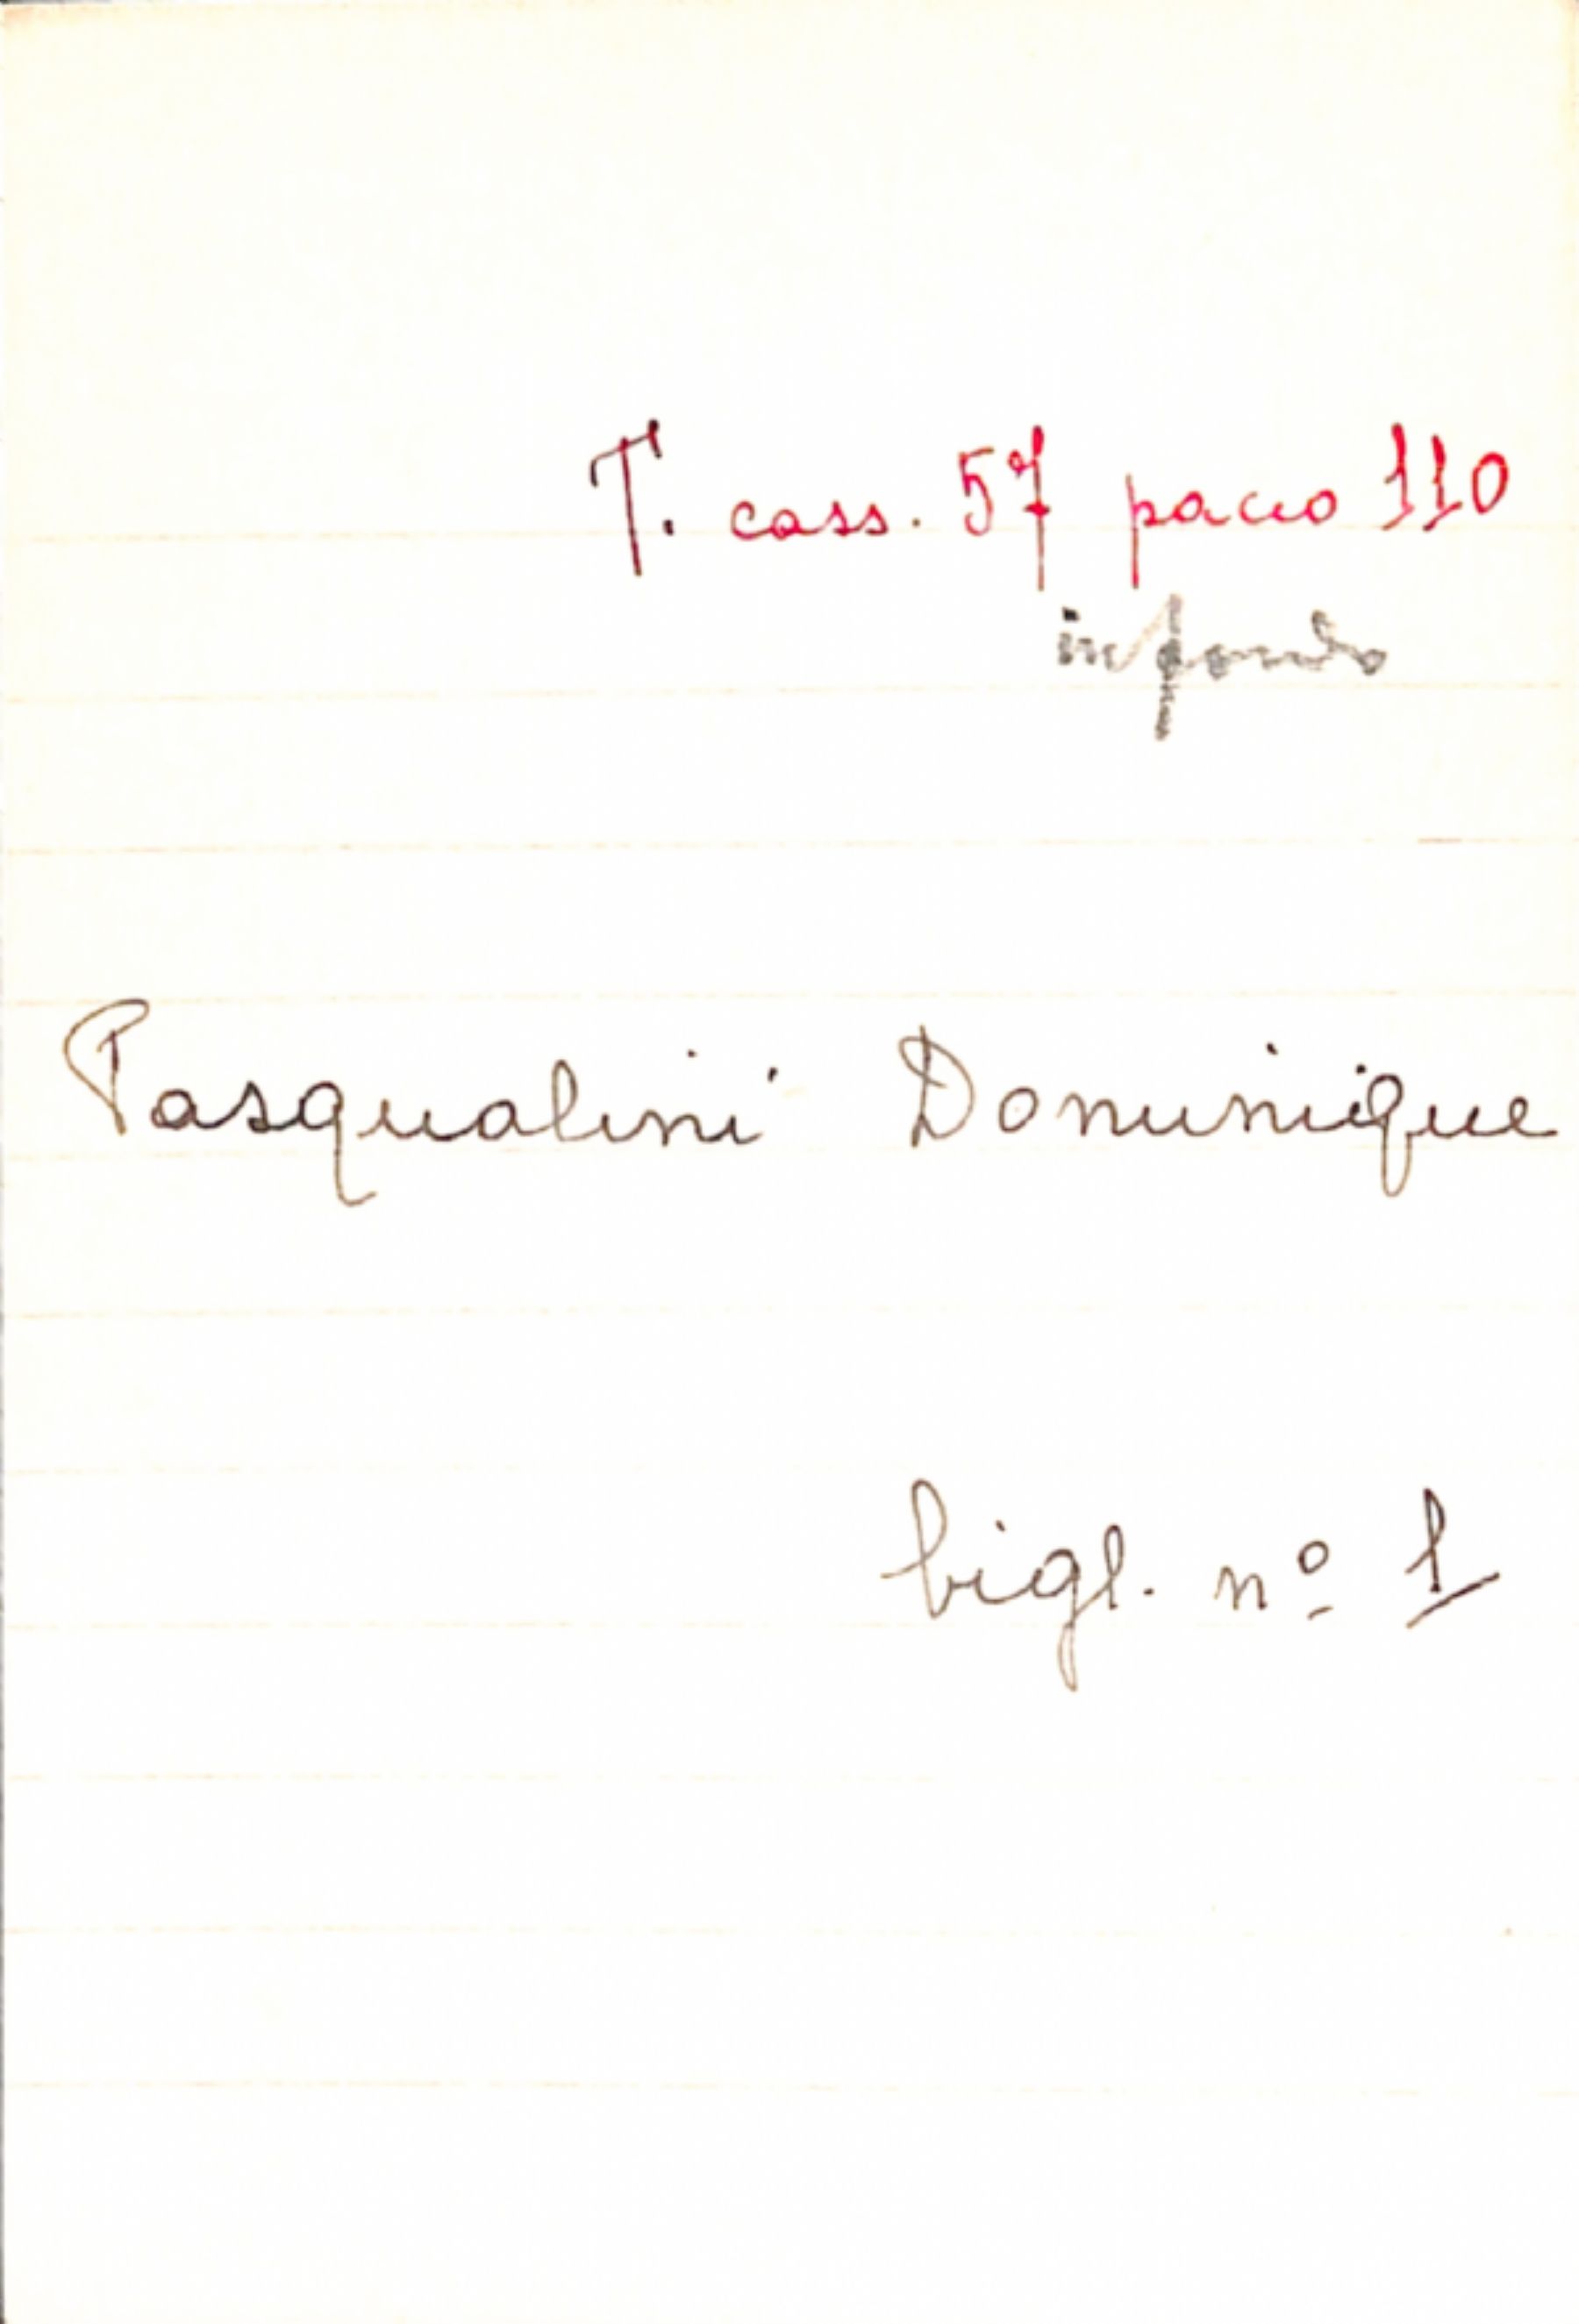 T. cass. 57 pacco 110
in fondo
Pasqualini Dominique
bigl. nº 1